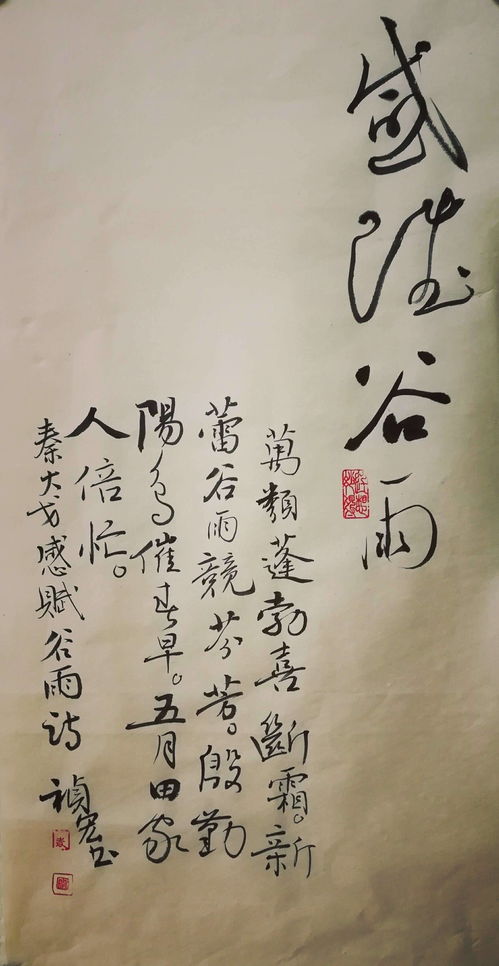 盛谷雨
萬類蓬勃喜斷霜。新
蕾谷雨競芬芳。殷勤
陽鳥催春早。五月田家
人倍忙。
秦大戈感賦谷雨詩 禎宏书